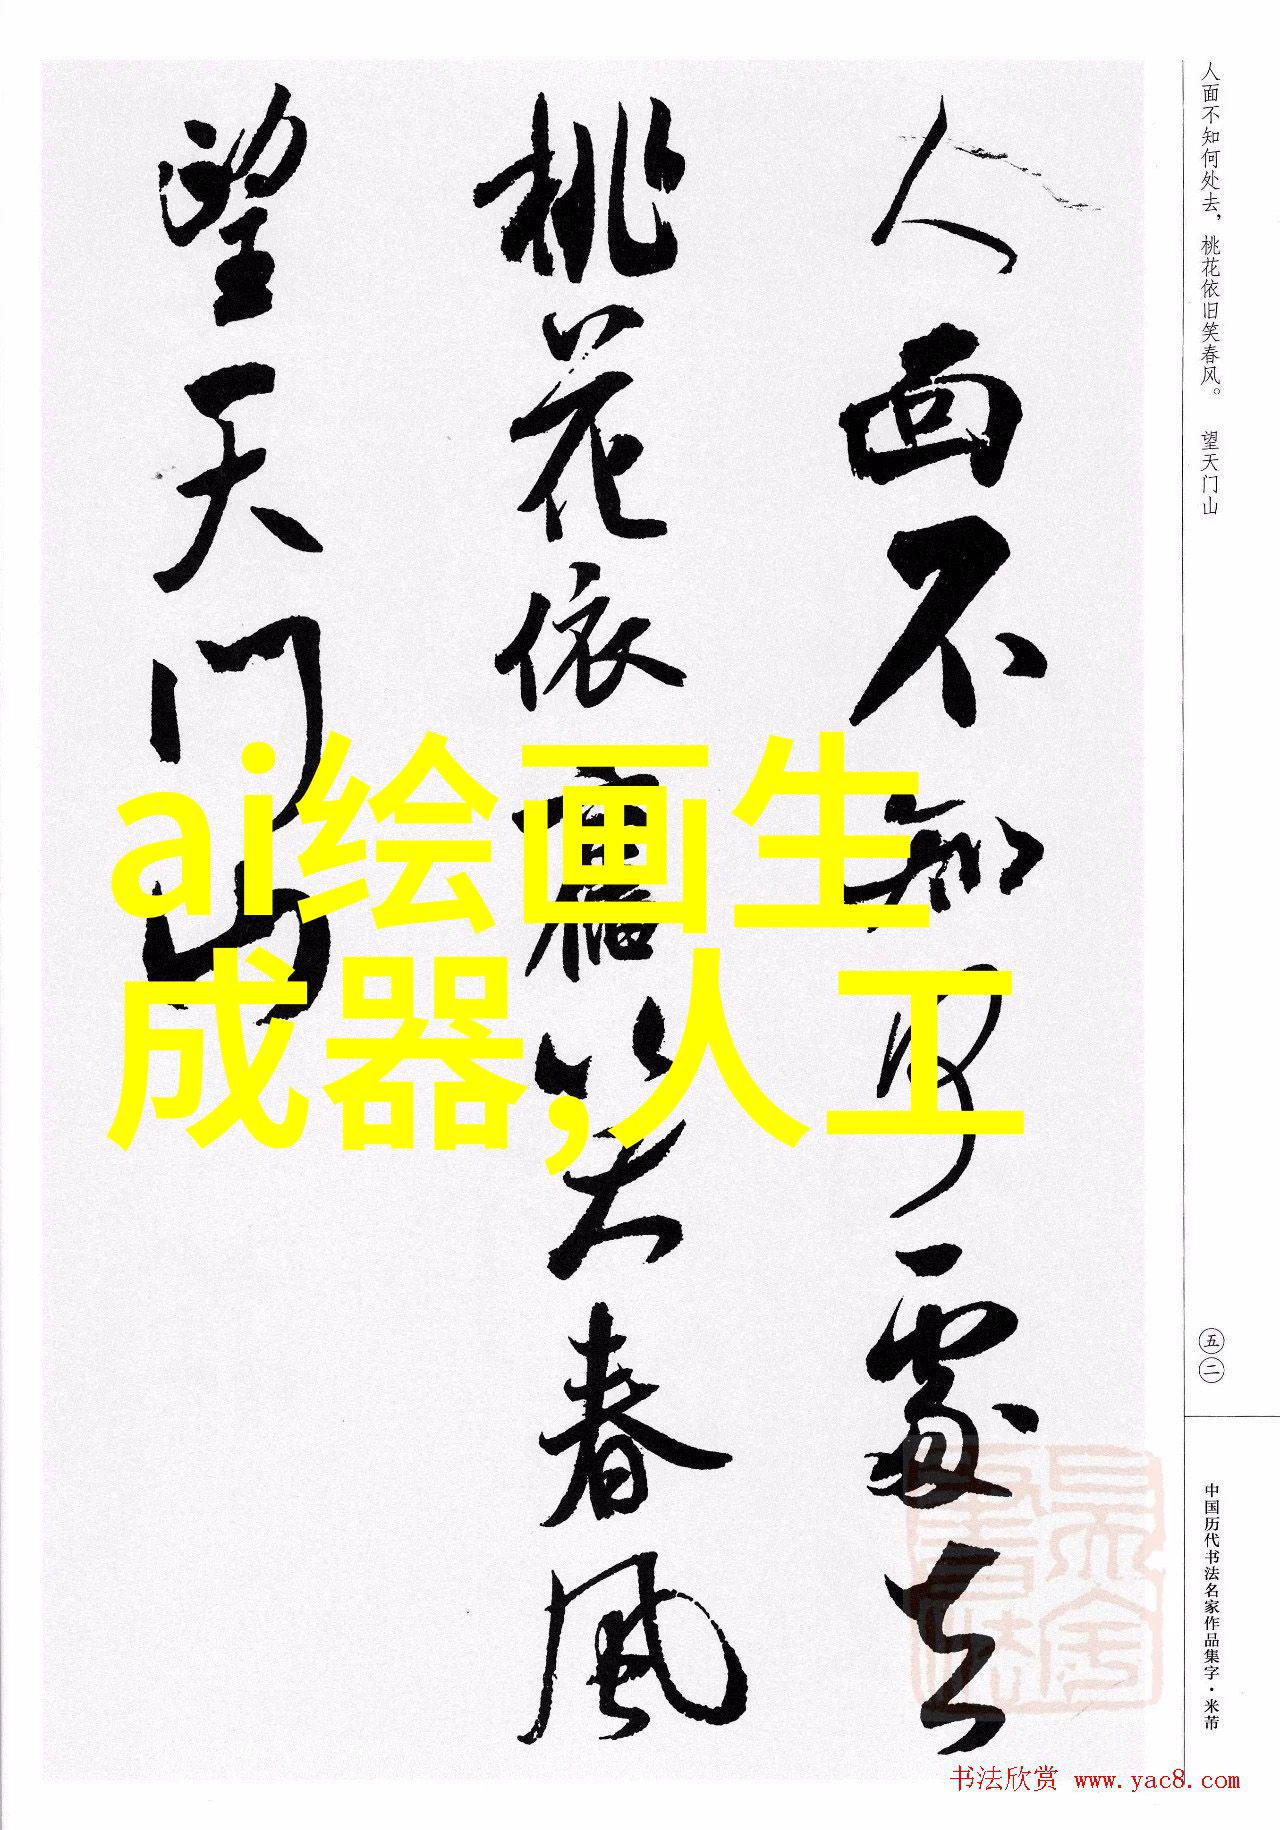 人面不知何处去，桃花依旧笑春风。 望天门山
人面不知何處去
桃花依舊笑春風
望天门山
ai绘画生
成器,人工
五二
中国历代书法名家作品集字·米芾
书法欣赏 www.yac8.com